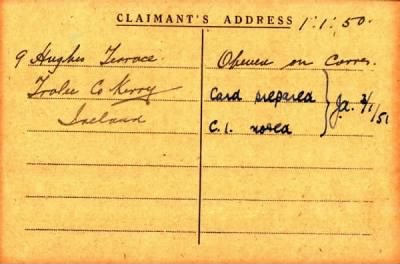 CLAIMANT'S ADDRESS 1.1.50.
9 Hughes Terrace.
Tralee Co Kerry
Ireland
Opened on Corres.
Card prepared
C.1. noted
Ja. 2/1/51